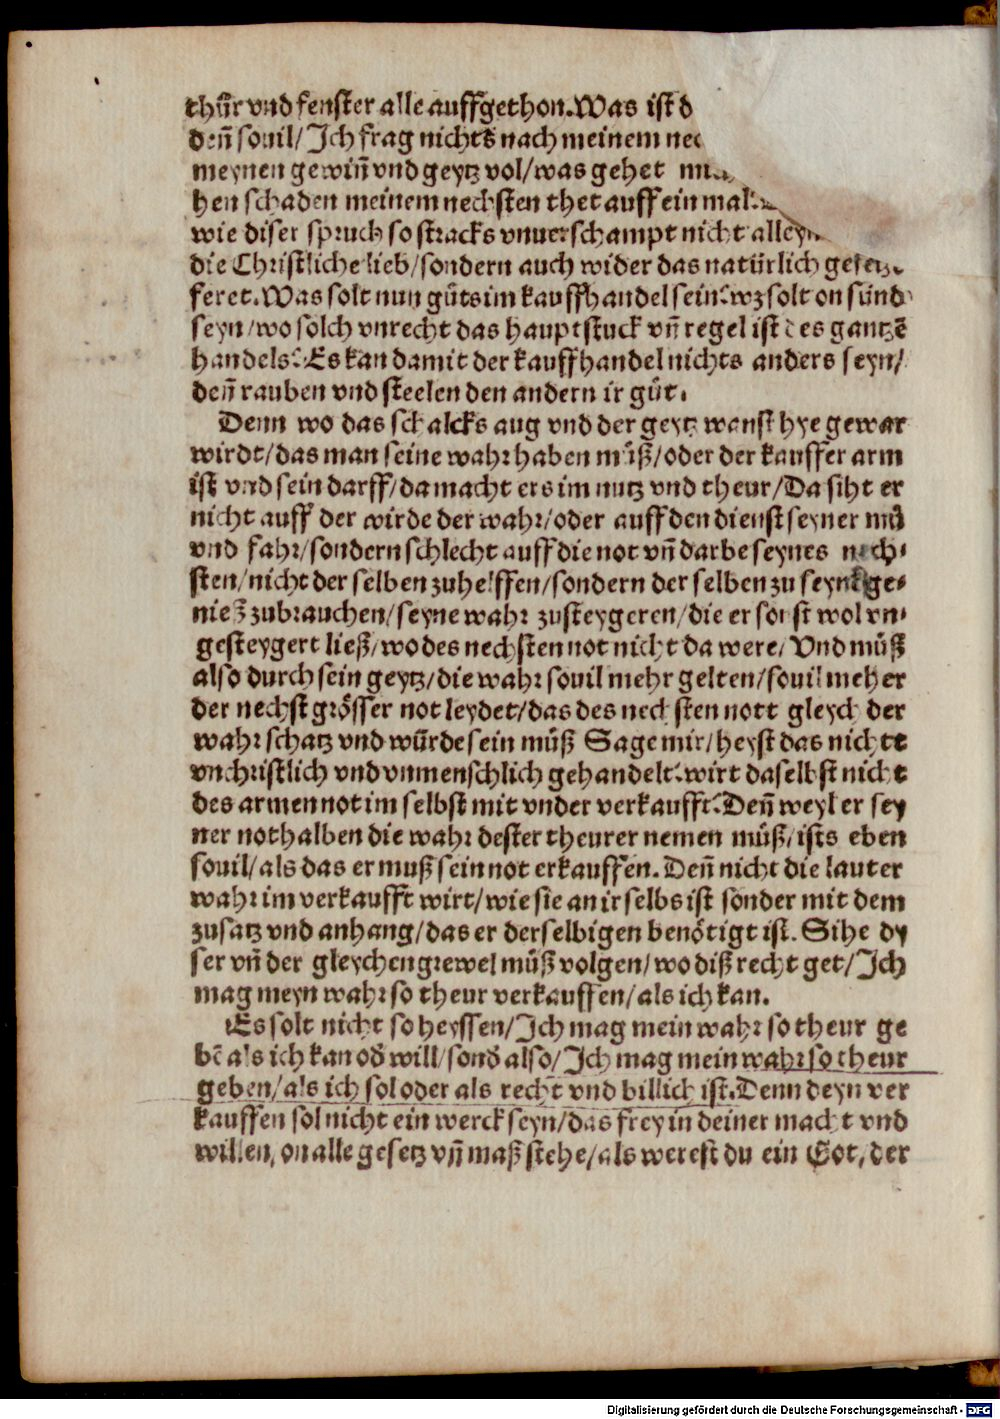 thür vnd fenster alle auffgethon. Was ist
deñ souil/ Jch frag nichts nach meinem
meynen gewiñ vnd geytz vol/ was gehet
hen schaden meinem nechsten thet auff ein mal?
wie diser spruch so stracks vnuerschampt nicht
die Christliche lieb/ sondern auch wider das natürlich gesetz
feret. Was solt nun gůts im kauffhandel sein? wz solt on sünd
seyn/ wo solch vnrecht das hauptstuck vñ regel ist des gantzē
handels? Es kan damit der kauffhandel nichts anders seyn/
deñ rauben vnd steelen den andern ir gůt.
Denn wo das schalcks aug vnd der geytz wanst hye gewar
wirdt/ das man seine wahr haben můß/ oder der kauffer arm
ist vnd sein darff/ da macht ers im nutz vnd theur/ Da siht er
nicht auff der wirde der wahr/ oder auff den dienst seyner mů
vnd fahr/ sondern schlecht auff die not vñ darbe seynes nech-
sten/ nicht der selben zuhelffen/ sondern der selben zu seynē ge-
nieß zubrauchen/ seyne wahr zusteygeren/ die er sonst wol vn-
gesteygert ließ/ wo des nechsten not nicht da were/ Vnd můß
also durch sein geytz/ die wahr souil mehr gelten/ souil meh er
der nechst grösser not leydet/ das des nechsten nott gleych der
wahr schatz vnd würde sein můß Sage mir/ heyst das nichtt
vnchristlich vnd vnmenschlich gehandelt? wirt daselbst nicht
des armen not im selbst mit vnder verkaufft? Deñ weyl er sey
ner not halben die wahr dester theurer nemen můß/ ists eben
souil/ als das er muß sein not erkauffen. Deñ nicht die lauter
wahr im verkaufft wirt/ wie sie an ir selbs ist sonder mit dem
zusatz vnd anhang/ das er derselbigen benötigt ist. Sihe dy
ser vñ der gleychen grewel můß volgen/ wo diß recht get/ Jch
mag meyn wahr so theur verkauffen/ als ich kan.
Es solt nicht so heyssen/ Jch mag mein wahr so theur ge
bē als ich kan od̕ will/ sond̕ also/ Jch mag mein wahr so theur
geben/ als ich sol oder als recht vnd billich ist. Denn deyn ver
kauffen sol nicht ein werck seyn/ das frey in deiner macht vnd
willen, on alle gesetz vñ maß stehe/ als werest du ein Got, der
Digitalisierung gefördert durch die Deutsche Forschungsgemeinschaft - DFG